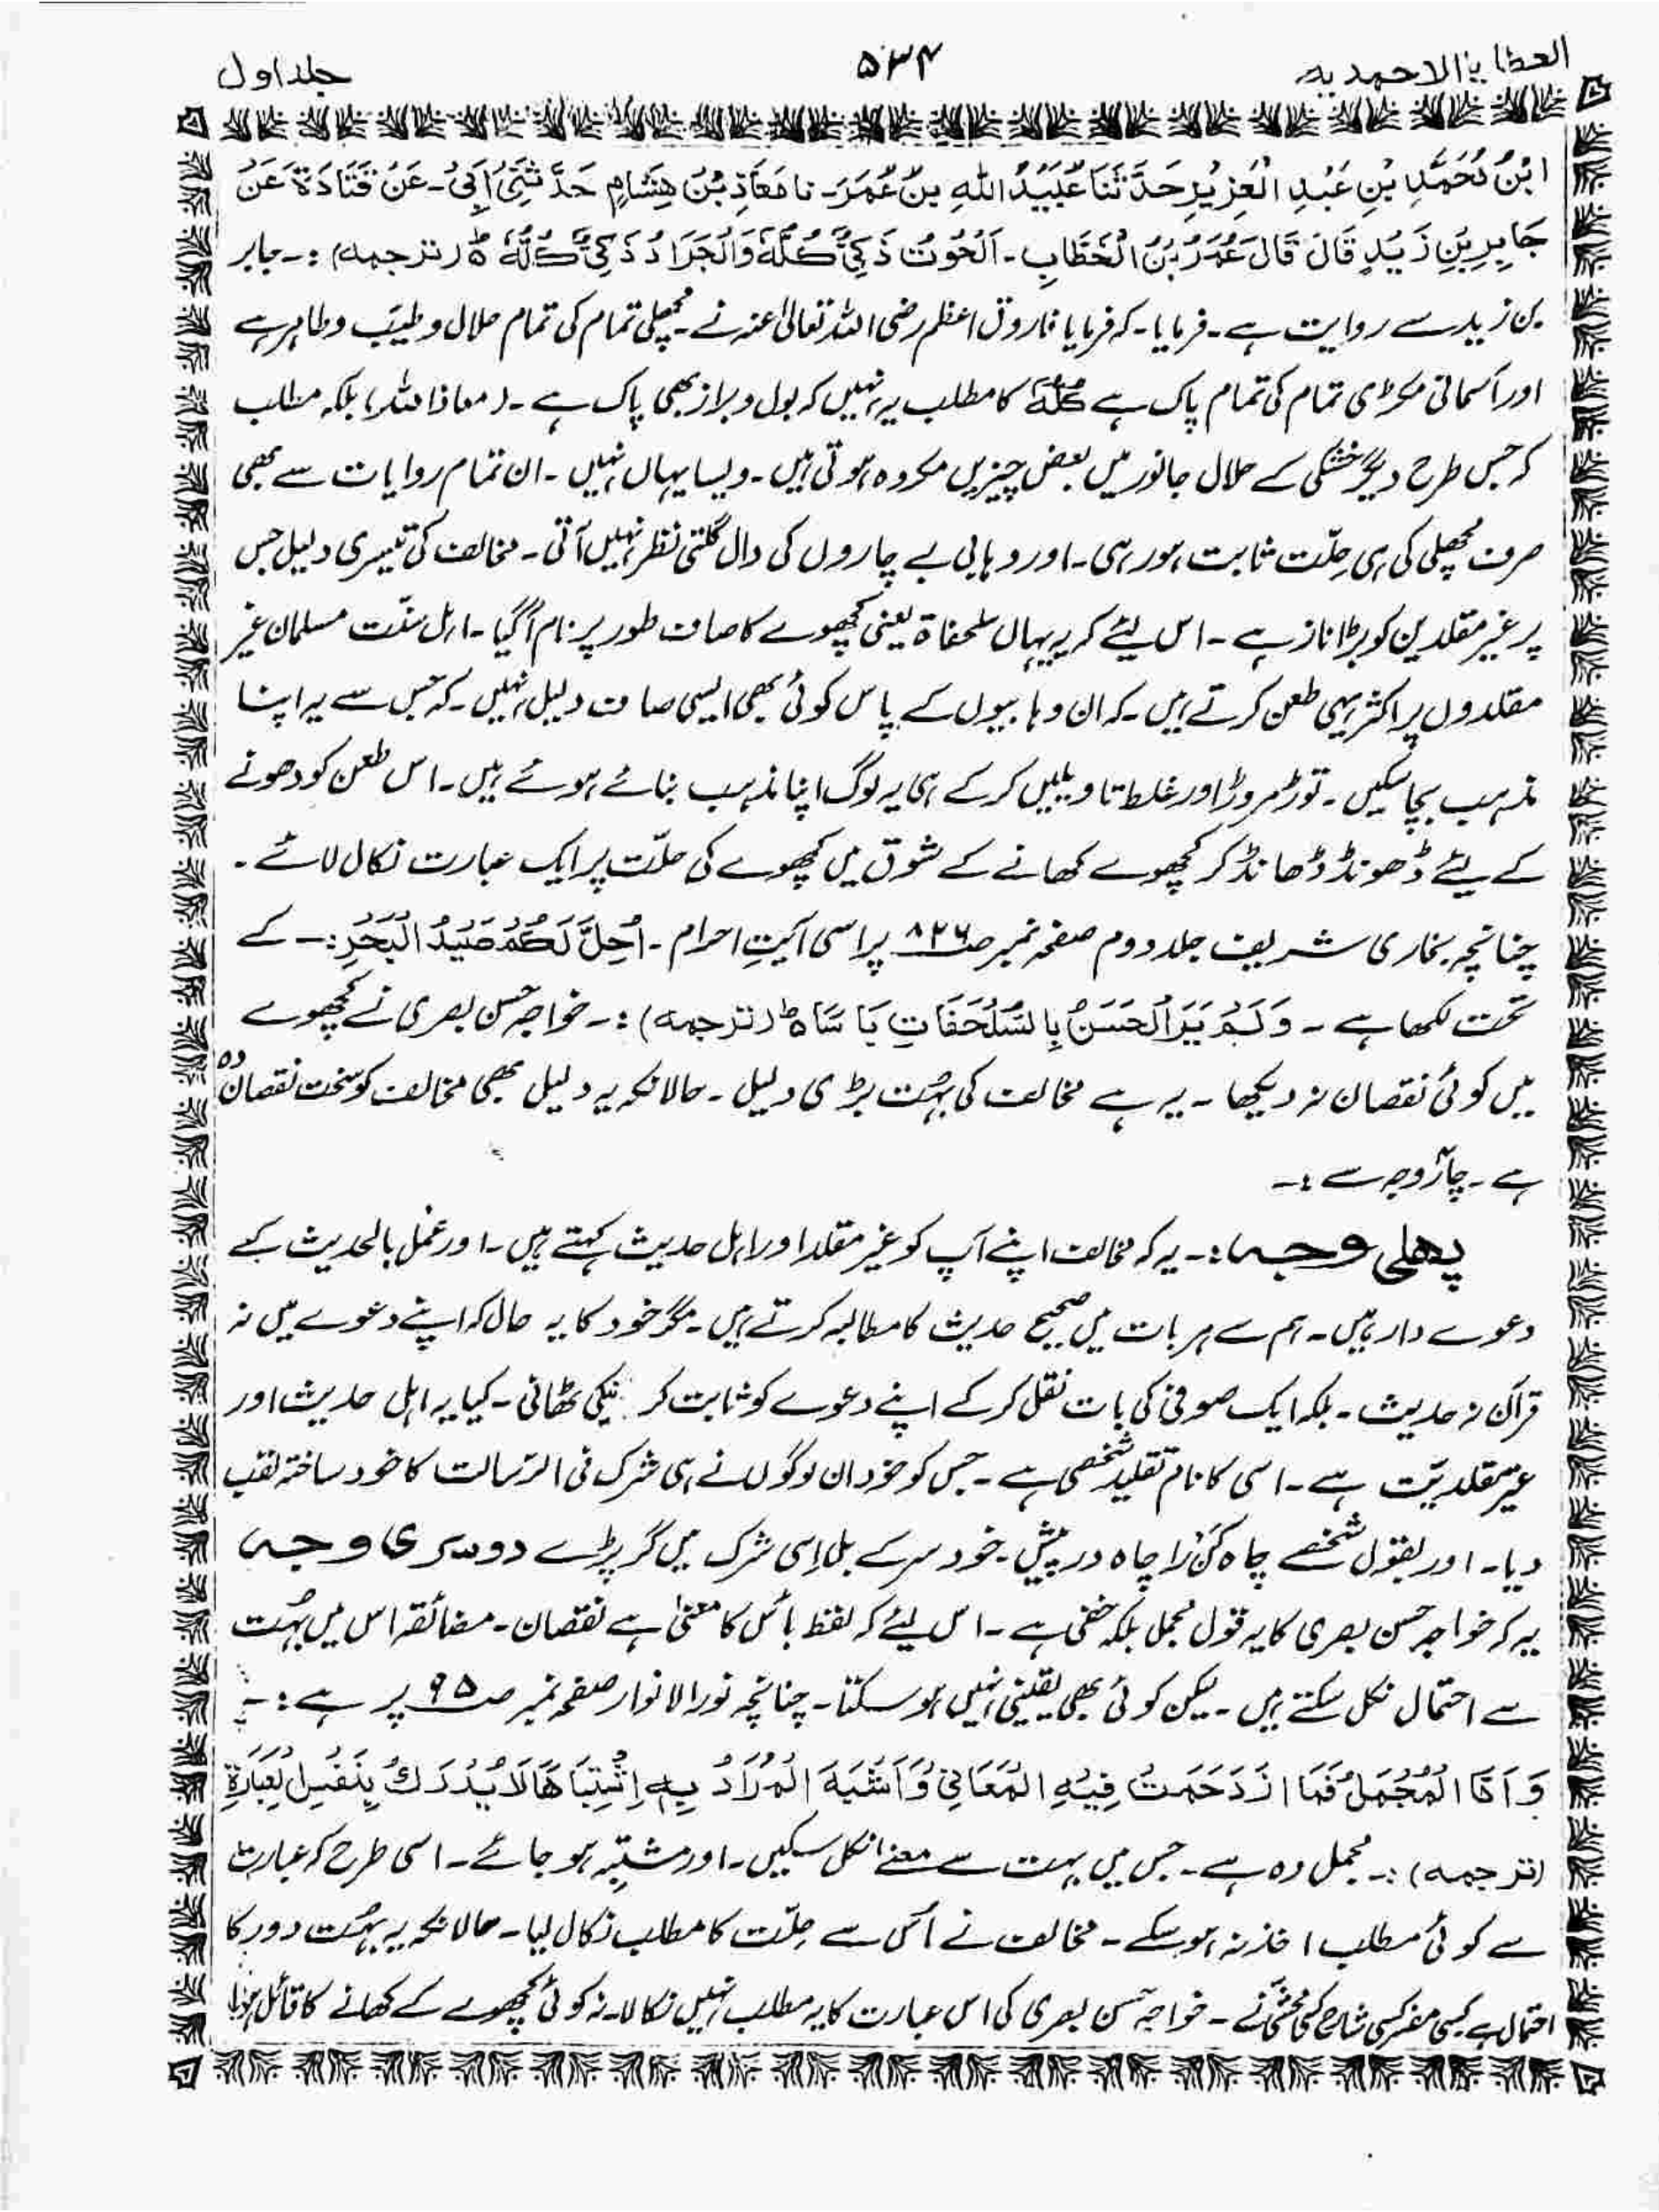 العطایا الاحمدیہ
۵۳۴
جلد اول
ابْنُ مُحَمَّدِ بْنِ عَبْدِ الْعَزِیْزِ حَدَّثَنَا عُبَیْدُ اللہِ بْنُ عُمَرَ۔ نا مَعَاذِ بْنَ هِشَامٍ حَدَّثَنِیْ اَبِیْ۔ عَنْ قَتَادَۃَ عَنْ
جَابِرِ بْنِ زَیْدٍ قَالَ قَالَ عُمَرُ بْنُ الْخَطَّابِ۔ اَلْحُوْتُ ذَکِیٌّ کُلُّہٗ وَالْجَرَادُ ذَکِیٌّ کُلُّہٗ ط (ترجمہ) :۔ جابر
بن زید سے روایت ہے۔ فرمایا۔ کہ فرمایا فاروق اعظم رضی اللہ تعالیٰ عنہ نے۔ مچھلی تمام کی تمام حلال و طیّب و طاہر ہے
اور آسمانی مکڑی تمام کی تمام پاک ہے کُلُّہٗ کا مطلب یہ نہیں کہ بول و براز بھی پاک ہے۔ (معاذ اللہ) بلکہ مطلب
کہ جس طرح دیگر خشکی کے حلال جانور میں بعض چیزیں مکروہ ہوتی ہیں۔ ویسا یہاں نہیں۔ ان تمام روایات سے بھی
صرف مچھلی کی ہی حِلّت ثابت ہو رہی۔ اور وہابی بے چاروں کی دال گلتی نظر نہیں آتی۔ مخالف کی تیسری دلیل جس
پر غیر مقلدین کو بڑا ناز ہے۔ اس لیئے کہ یہ یہاں سلحفاۃ یعنی کچھوے کا صاف طور پر نام آ گیا۔ اہل سنّت مسلمان غیر
مقلدوں پر اکثر یہی طعن کرتے ہیں۔ کہ ان وہابیوں کے پاس کوئی بھی ایسی صاف دلیل نہیں۔ کہ جس سے یہ اپنا
مذہب بچا سکیں۔ توڑ مروڑ اور غلط تاویلیں کر کے ہی یہ لوگ اپنا مذہب بنائے ہوئے ہیں۔ اس طعن کو دھونے
کے لیئے ڈھونڈ ڈھانڈ کر کچھوے کھانے کے شوق میں کچھوے کی حلّت پر ایک عبارت نکال لائے۔
چنانچہ بخاری شریف جلد دوم صفحہ نمبر صـ ۸۲۶ پر اسی آیتِ احرام۔ اُحِلَّ لَکُمْ صَیْدُ الْبَحْرِ :۔ کے
تحت لکھا ہے۔ وَلَمْ یَرَ الْحَسَنُ بِالسُّلَحْفَاتِ بَاسًا ط (ترجمہ) :۔ خواجہ حسن بصری نے کچھوے
میں کوئی نقصان نہ دیکھا۔ یہ ہے مخالف کی بہُت بڑی دلیل۔ حالانکہ یہ دلیل بھی مخالف کو سخت نقصان دہ
ہے۔ چار وجہ سے :۔
پہلی وجہ :۔ یہ کہ مخالف اپنے آپ کو غیر مقلد اور اہل حدیث کہتے ہیں۔ اور عمل بالحدیث کے
دعوے دار ہیں۔ ہم سے ہر بات میں صحیح حدیث کا مطالبہ کرتے ہیں۔ مگر خود کا یہ حال کہ اپنے دعوے میں نہ
قرآن نہ حدیث۔ بلکہ ایک صوفی کی بات نقل کر کے اپنے دعوے کو ثابت کر نیکی ٹھانی۔ کیا یہ اہل حدیث اور
غیر مقلدیّت ہے۔ اسی کا نام تقلید شخصی ہے۔ جس کو خود ان لوگوں نے ہی شرک فی الرّسالت کا خود ساختہ لقب
دیا۔ اور بقول شخصے چاہ کَنْ را چاہ در پیش۔ خود سر کے بل اِسی شرک میں گر پڑے دوسری وجہ
یہ کہ خواجہ حسن بصری کا یہ قول مجمل بلکہ خفی ہے۔ اس لیئے کہ لفظ بأس کا معنیٰ ہے نقصان۔ مضائقہ اس میں بہُت
سے احتمال نکل سکتے ہیں۔ لیکن کوئی بھی یقینی نہیں ہو سکتا۔ چنانچہ نور الانوار صفحہ نمبر صـ ۹۵ پر ہے :۔
وَاَمَّا الْمُجْمَلُ فَمَا ازْدَحَمَتْ فِیْہِ الْمَعَانِیْ وَاَشْبَہَ الْمُرَادُ بِہٖ اِشْتِبَاھًا لَا یُدْرَكُ بِنَفْسِ لْعِبَارَۃِ
(ترجمہ) :۔ مجمل وہ ہے۔ جس میں بہت سے معنے نکل سکیں۔ اور مشتبِہ ہو جائے۔ اسی طرح کہ عبارت
سے کوئی مطلب اخذ نہ ہو سکے۔ مخالف نے اُس سے حِلّت کا مطلب نکال لیا۔ حالانکہ یہ بہُت دور کا
احتمال ہے کسی مفسر کسی شارح کسی محشی نے۔ خواجہ حسن بصری کی اس عبارت کا یہ مطلب نہیں نکالا۔ نہ کوئی کچھوے کے کھانے کا قائل ہوا